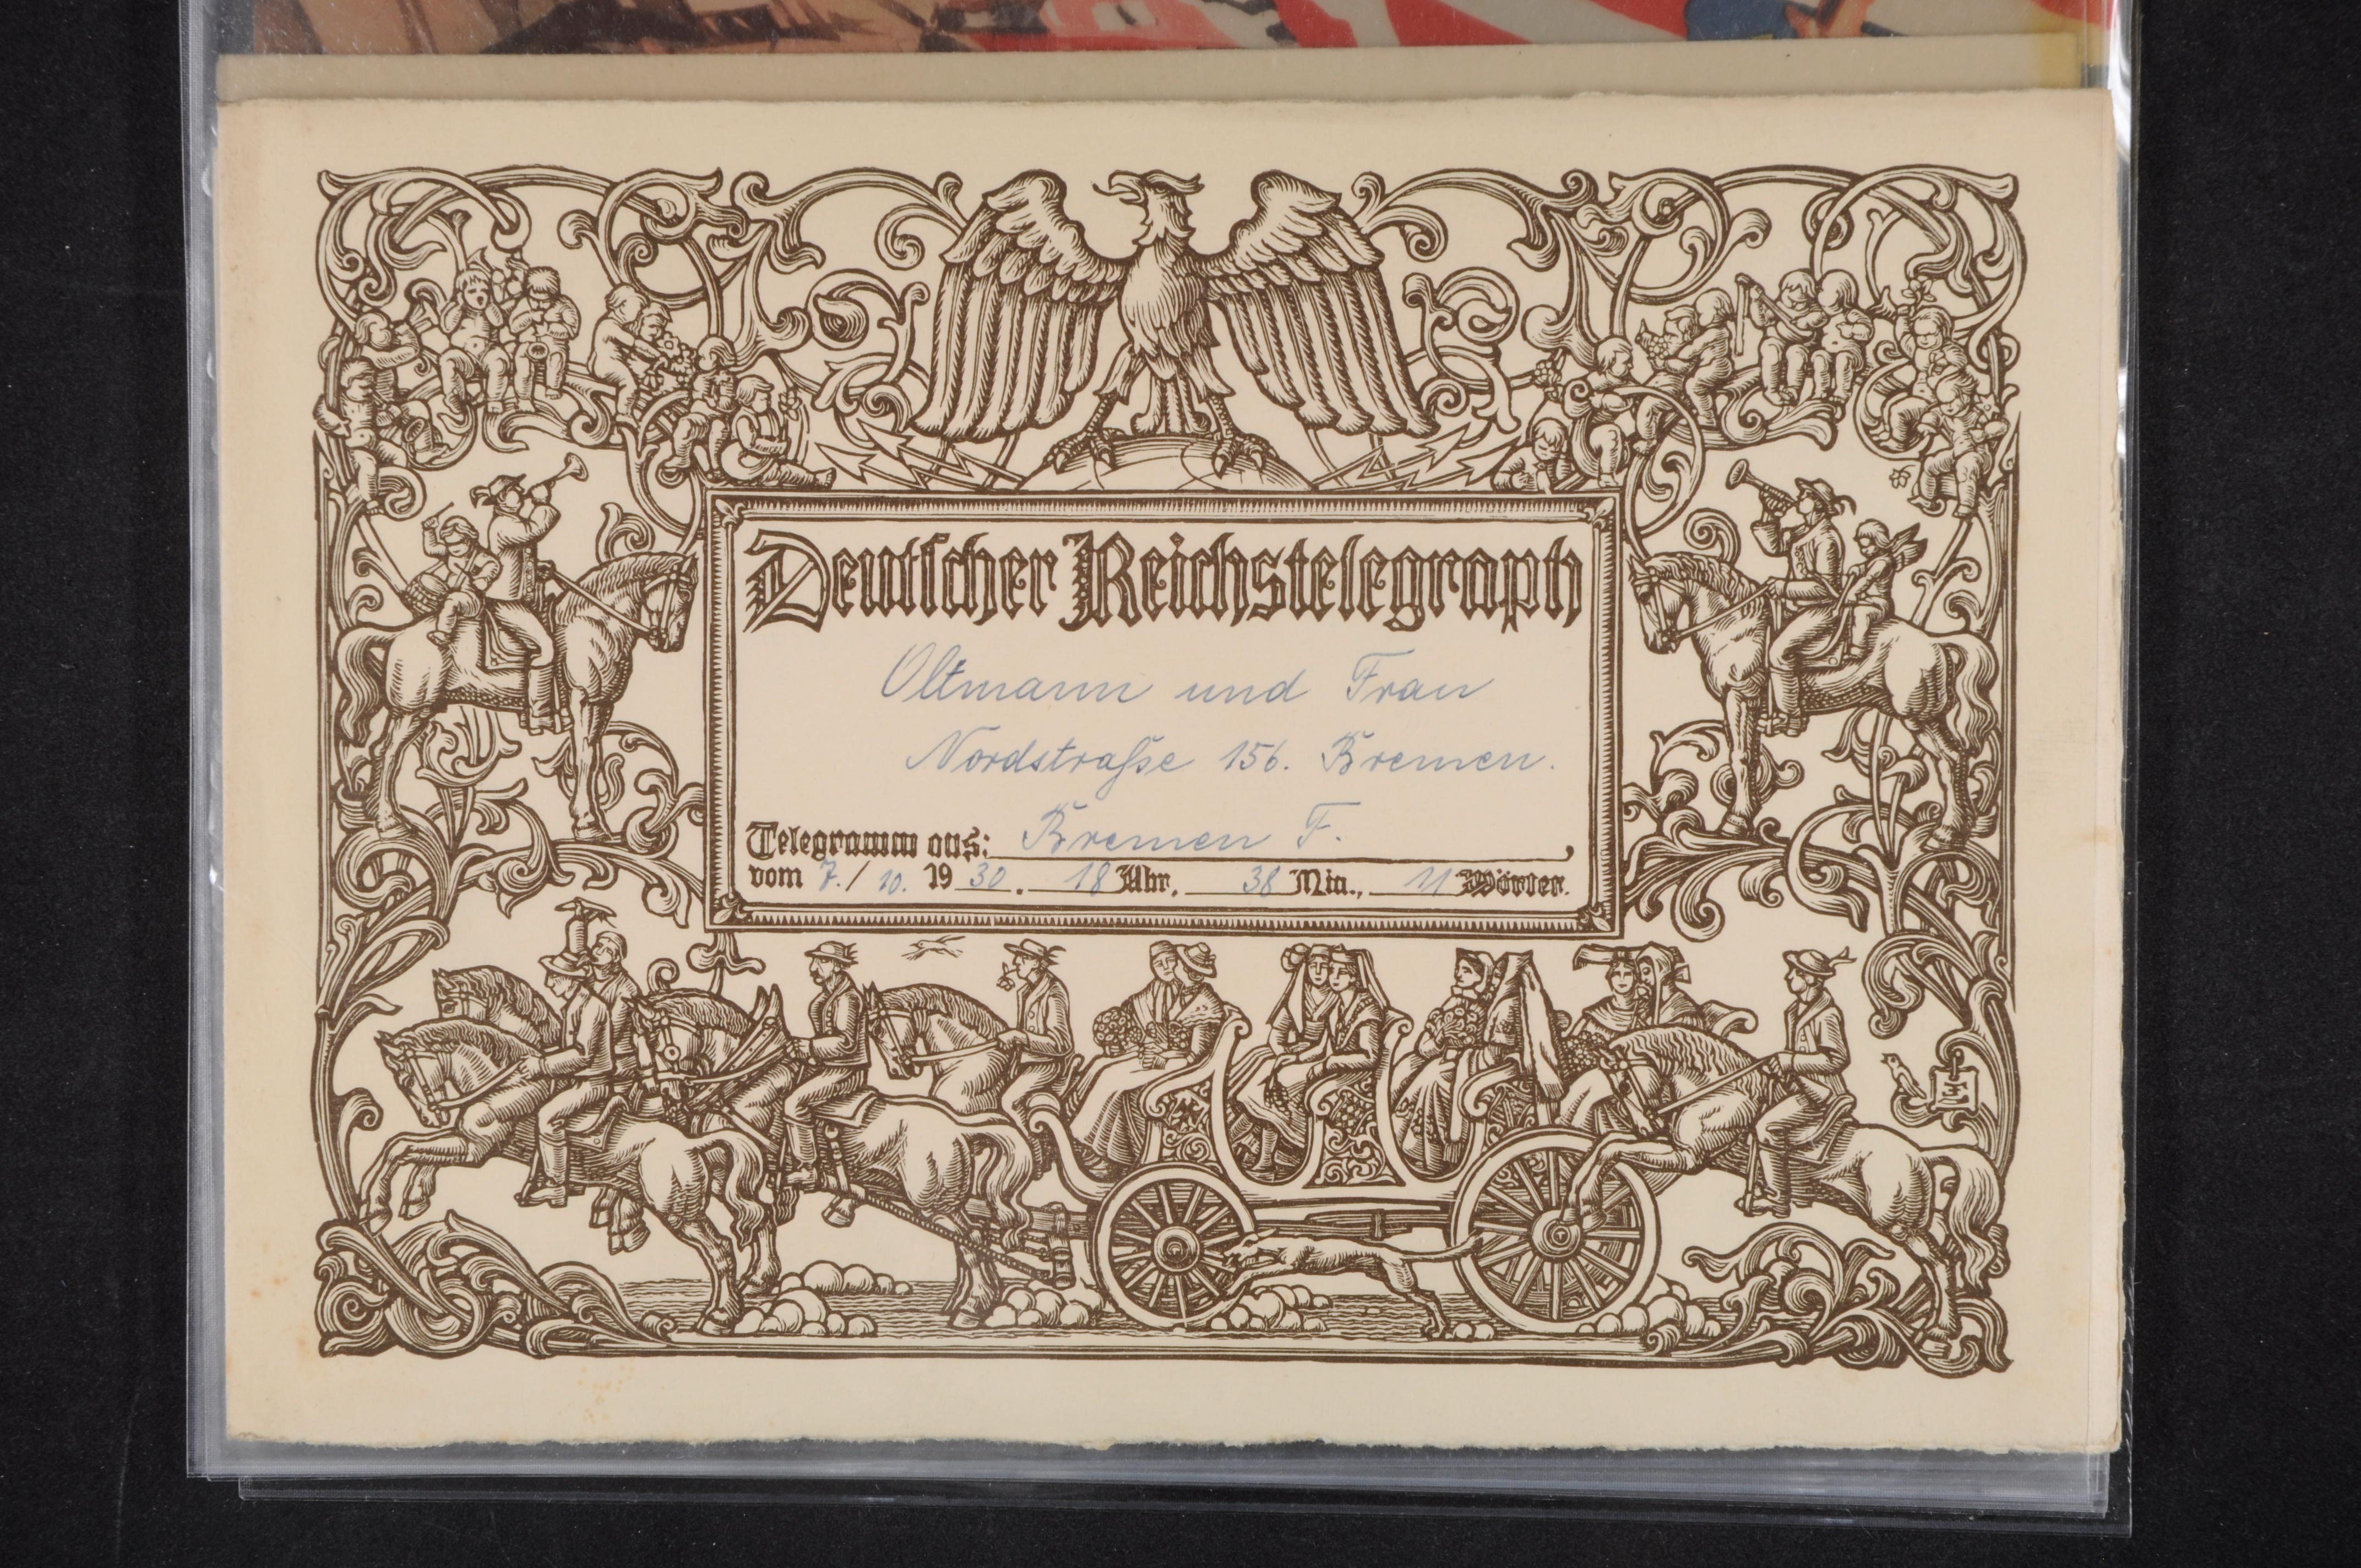 Deutscher Reichstelegraph
Oltmann und Frau
Nordstraße 156. Bremen.
Telegramm aus: Bremen F.,
vom 7./10. 1930. 18 Uhr, 38 Min., 11 Wörter.